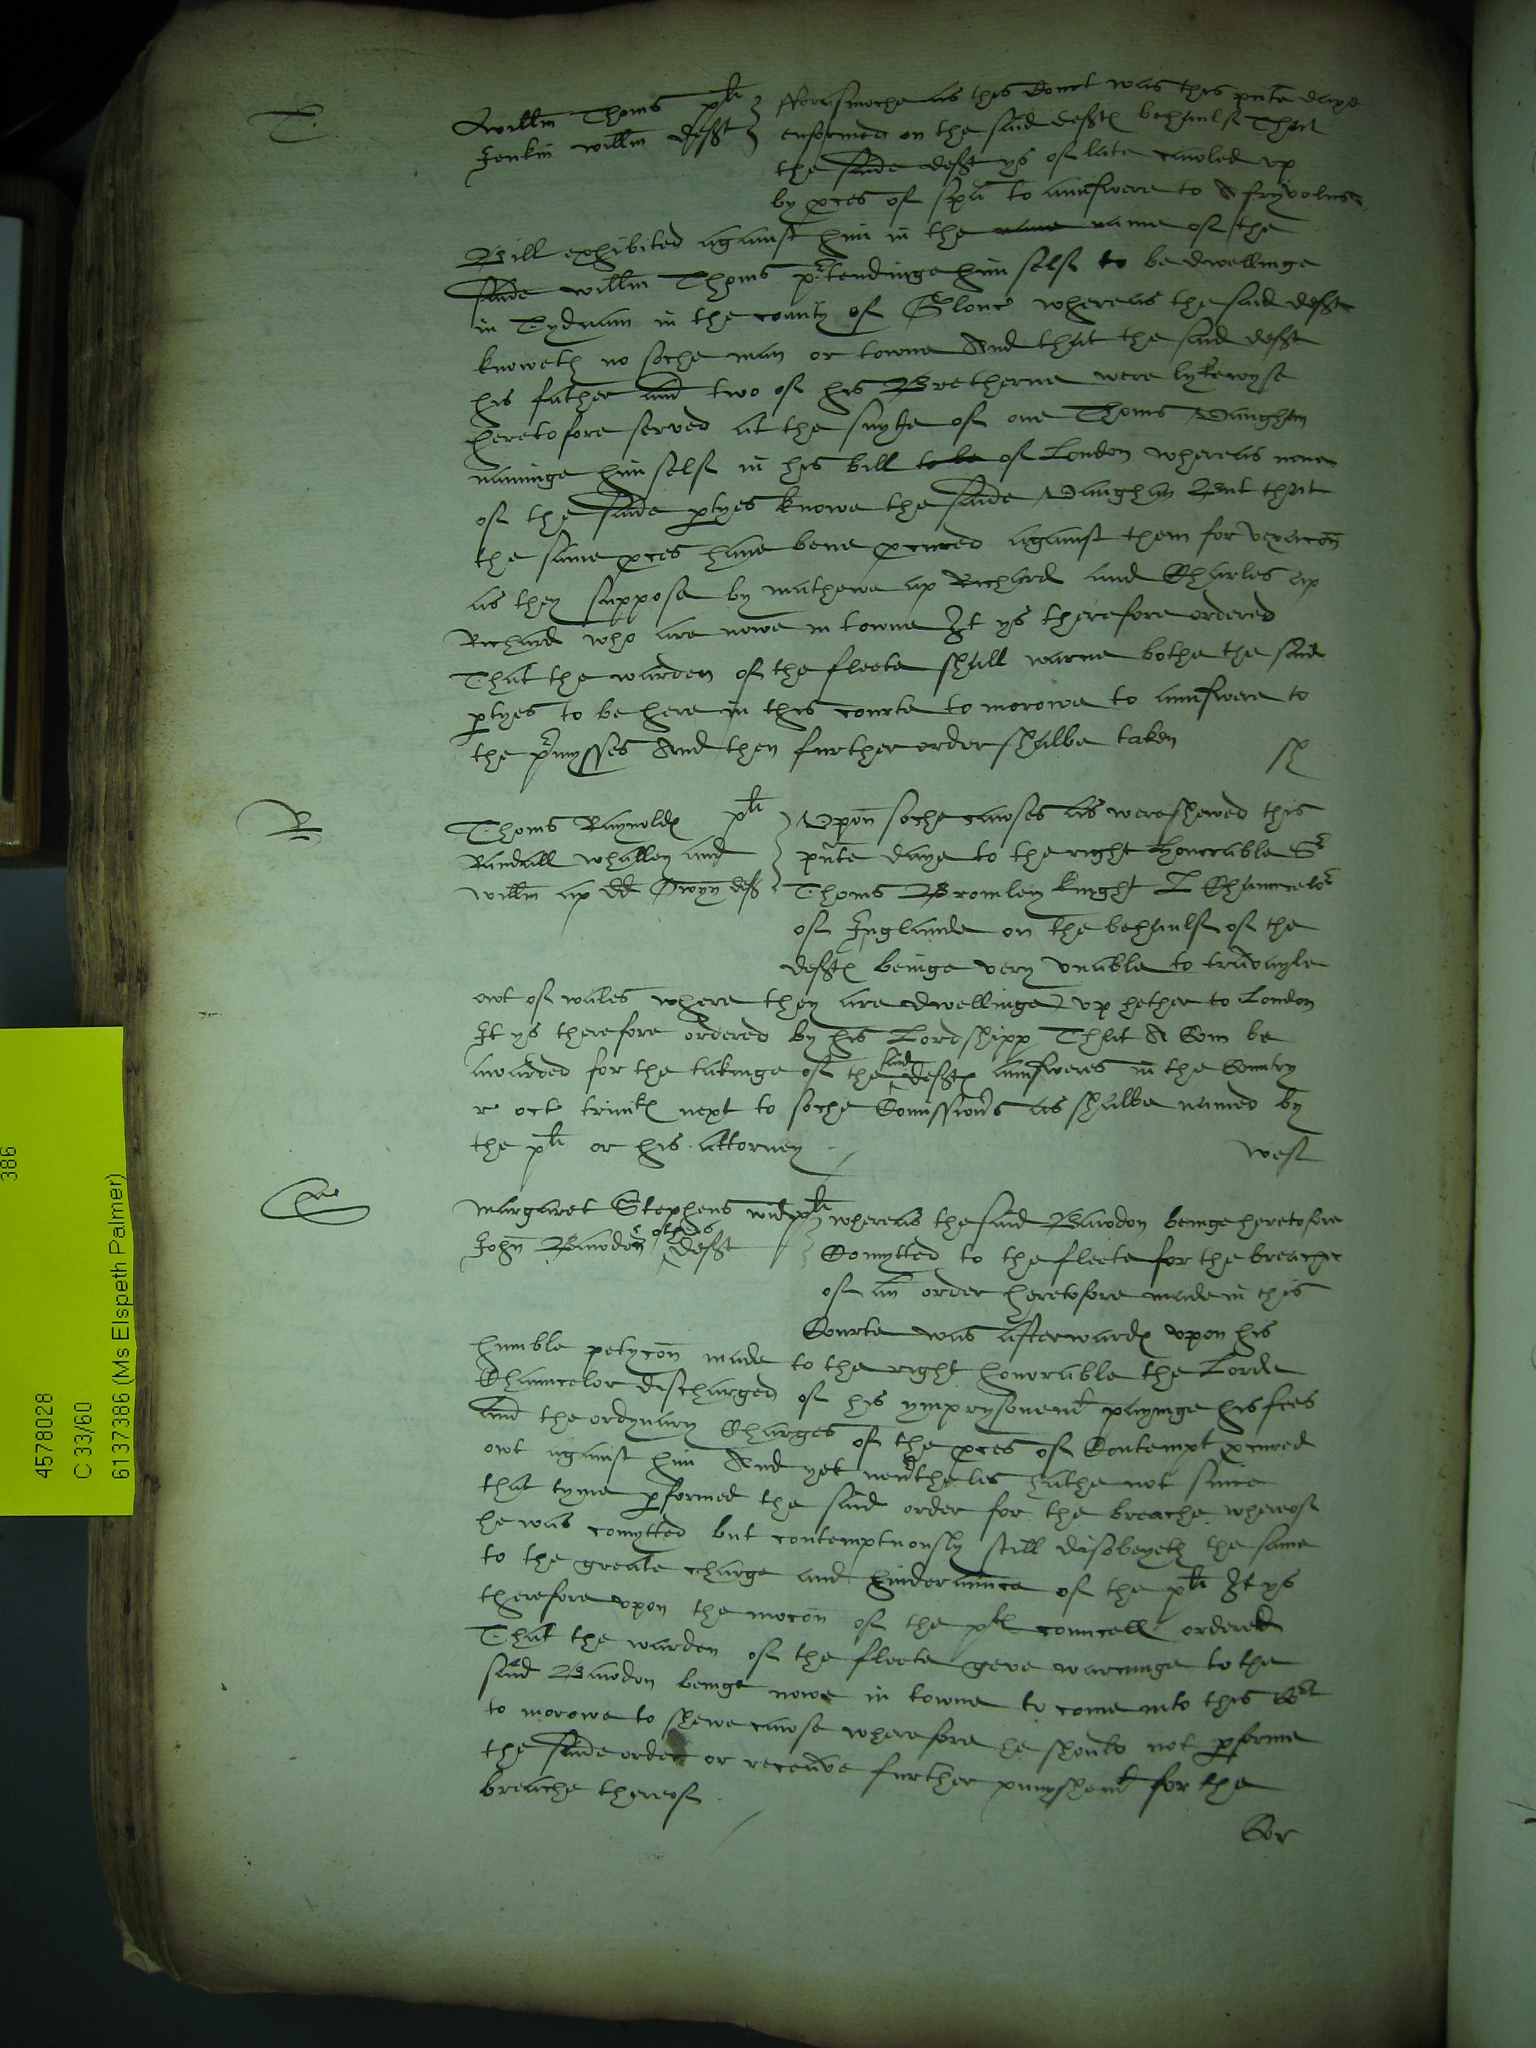 T.
Willm Thoms plt
Jenkin Willm deft
fforasmoche as this Court was this pnte daye
enformed on the said deftes behaulf That
the saide deft ys of late caused vp
by pces of spa to aunswere to A fryvolus
Bill exhibited against him in the name of the
saide Willm Thoms ptendinge him self to be dwellinge
in Tydnam in the county of Glouc whereas the said deft
knoweth no soche man or towne And that the said deft
his father and two of his Bretherne were lykewyse
heretofore served at the suyte of one Thoms Vaughan
naminge him self in his bill to be of London whereas none
of the saide ptyes knowe the saide Vaughan But that
the same pces haue bene pcured against them for vexacon
as they suppose by Mathewe ap Richard and Charles ap
Richard who are nowe in towne It ys therefore ordered
That the warden of the fleete shall warne bothe the said
ptyes to be here in this courte to morowe to aunswere to
the pmysses And then further order shalbe taken
sh
R
Thoms Raynoldes plt
Randall Whalley and
Willm ap dd Gwyn def
Vpon soche causes as were shewed this
pnte daye to the right honorable Sr
Thoms Bromley knight L Chauncelor
of Inglande on the behaulf of the
deftes beinge very vnable to travayle
owt of wales where they are dwellinge vp hether to London
It ys therefore ordered by his Lordshipp That A Com be
awarded for the takinge of the said deftes aunsweres in the Contry
r oct trinit next to soche Comissions as shalbe named by
the plt or his attorney
west
Margaret Stephens wid plt
John Bawdon & others deft
whereas the said Bawdon beinge heretofore
Comytted to the fleete for the breache
of an order heretofore made in this
Courte was afterwardes vpon his
humble petycon made to the right honorable the Lorde
Chauncelor discharged of his ymprysonemt payinge his fees
and the ordynary Charges of the pces of Contempt pcured
owt against him And yet neutheles hathe not since
that tyme pformed the said order for the breache whereof
he was comytted but contemptuously still disobeyeth the same
to the greate charge and hinderaunce of the plt It ys
therefore vpon the mocon of the pltes councell ordered
That the warden of the fleete geve warninge to the
said Bawdon beinge nowe in towne to come into this Cort
to morowe to shewe cause wherefore he should not pforme
the saide order or receave further punyshemt for the
breache thereof
Cor
386
4578028
C 33/60
6137386 (Ms Elspeth Palmer)